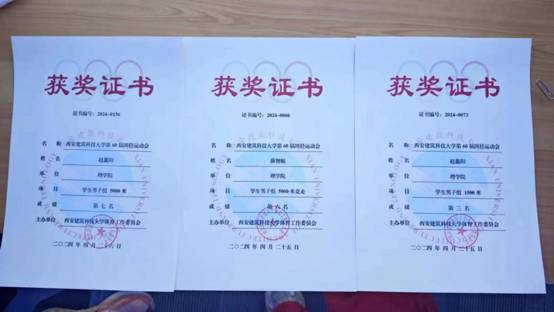 获奖证书
证书编号：2024-0156
名称 西安建筑科技大学第60届田径运动会
姓名
单位 理学院
项目 学生男子组 5000米
成绩 第七名
主办单位 西安建筑科技大学体育工作委员会
二〇二四年四月二十六日
获奖证书
证书编号：2024-0086
名称 西安建筑科技大学第60届田径运动会
姓名
单位 理学院
项目 学生男子组 5000米竞走
成绩 第六名
主办单位 西安建筑科技大学体育工作委员会
二〇二四年四月二十五日
获奖证书
证书编号：2024-0073
名称 西安建筑科技大学第60届田径运动会
姓名
单位 理学院
项目 学生男子组 1500米
成绩 第三名
主办单位 西安建筑科技大学体育工作委员会
二〇二四年四月二十五日